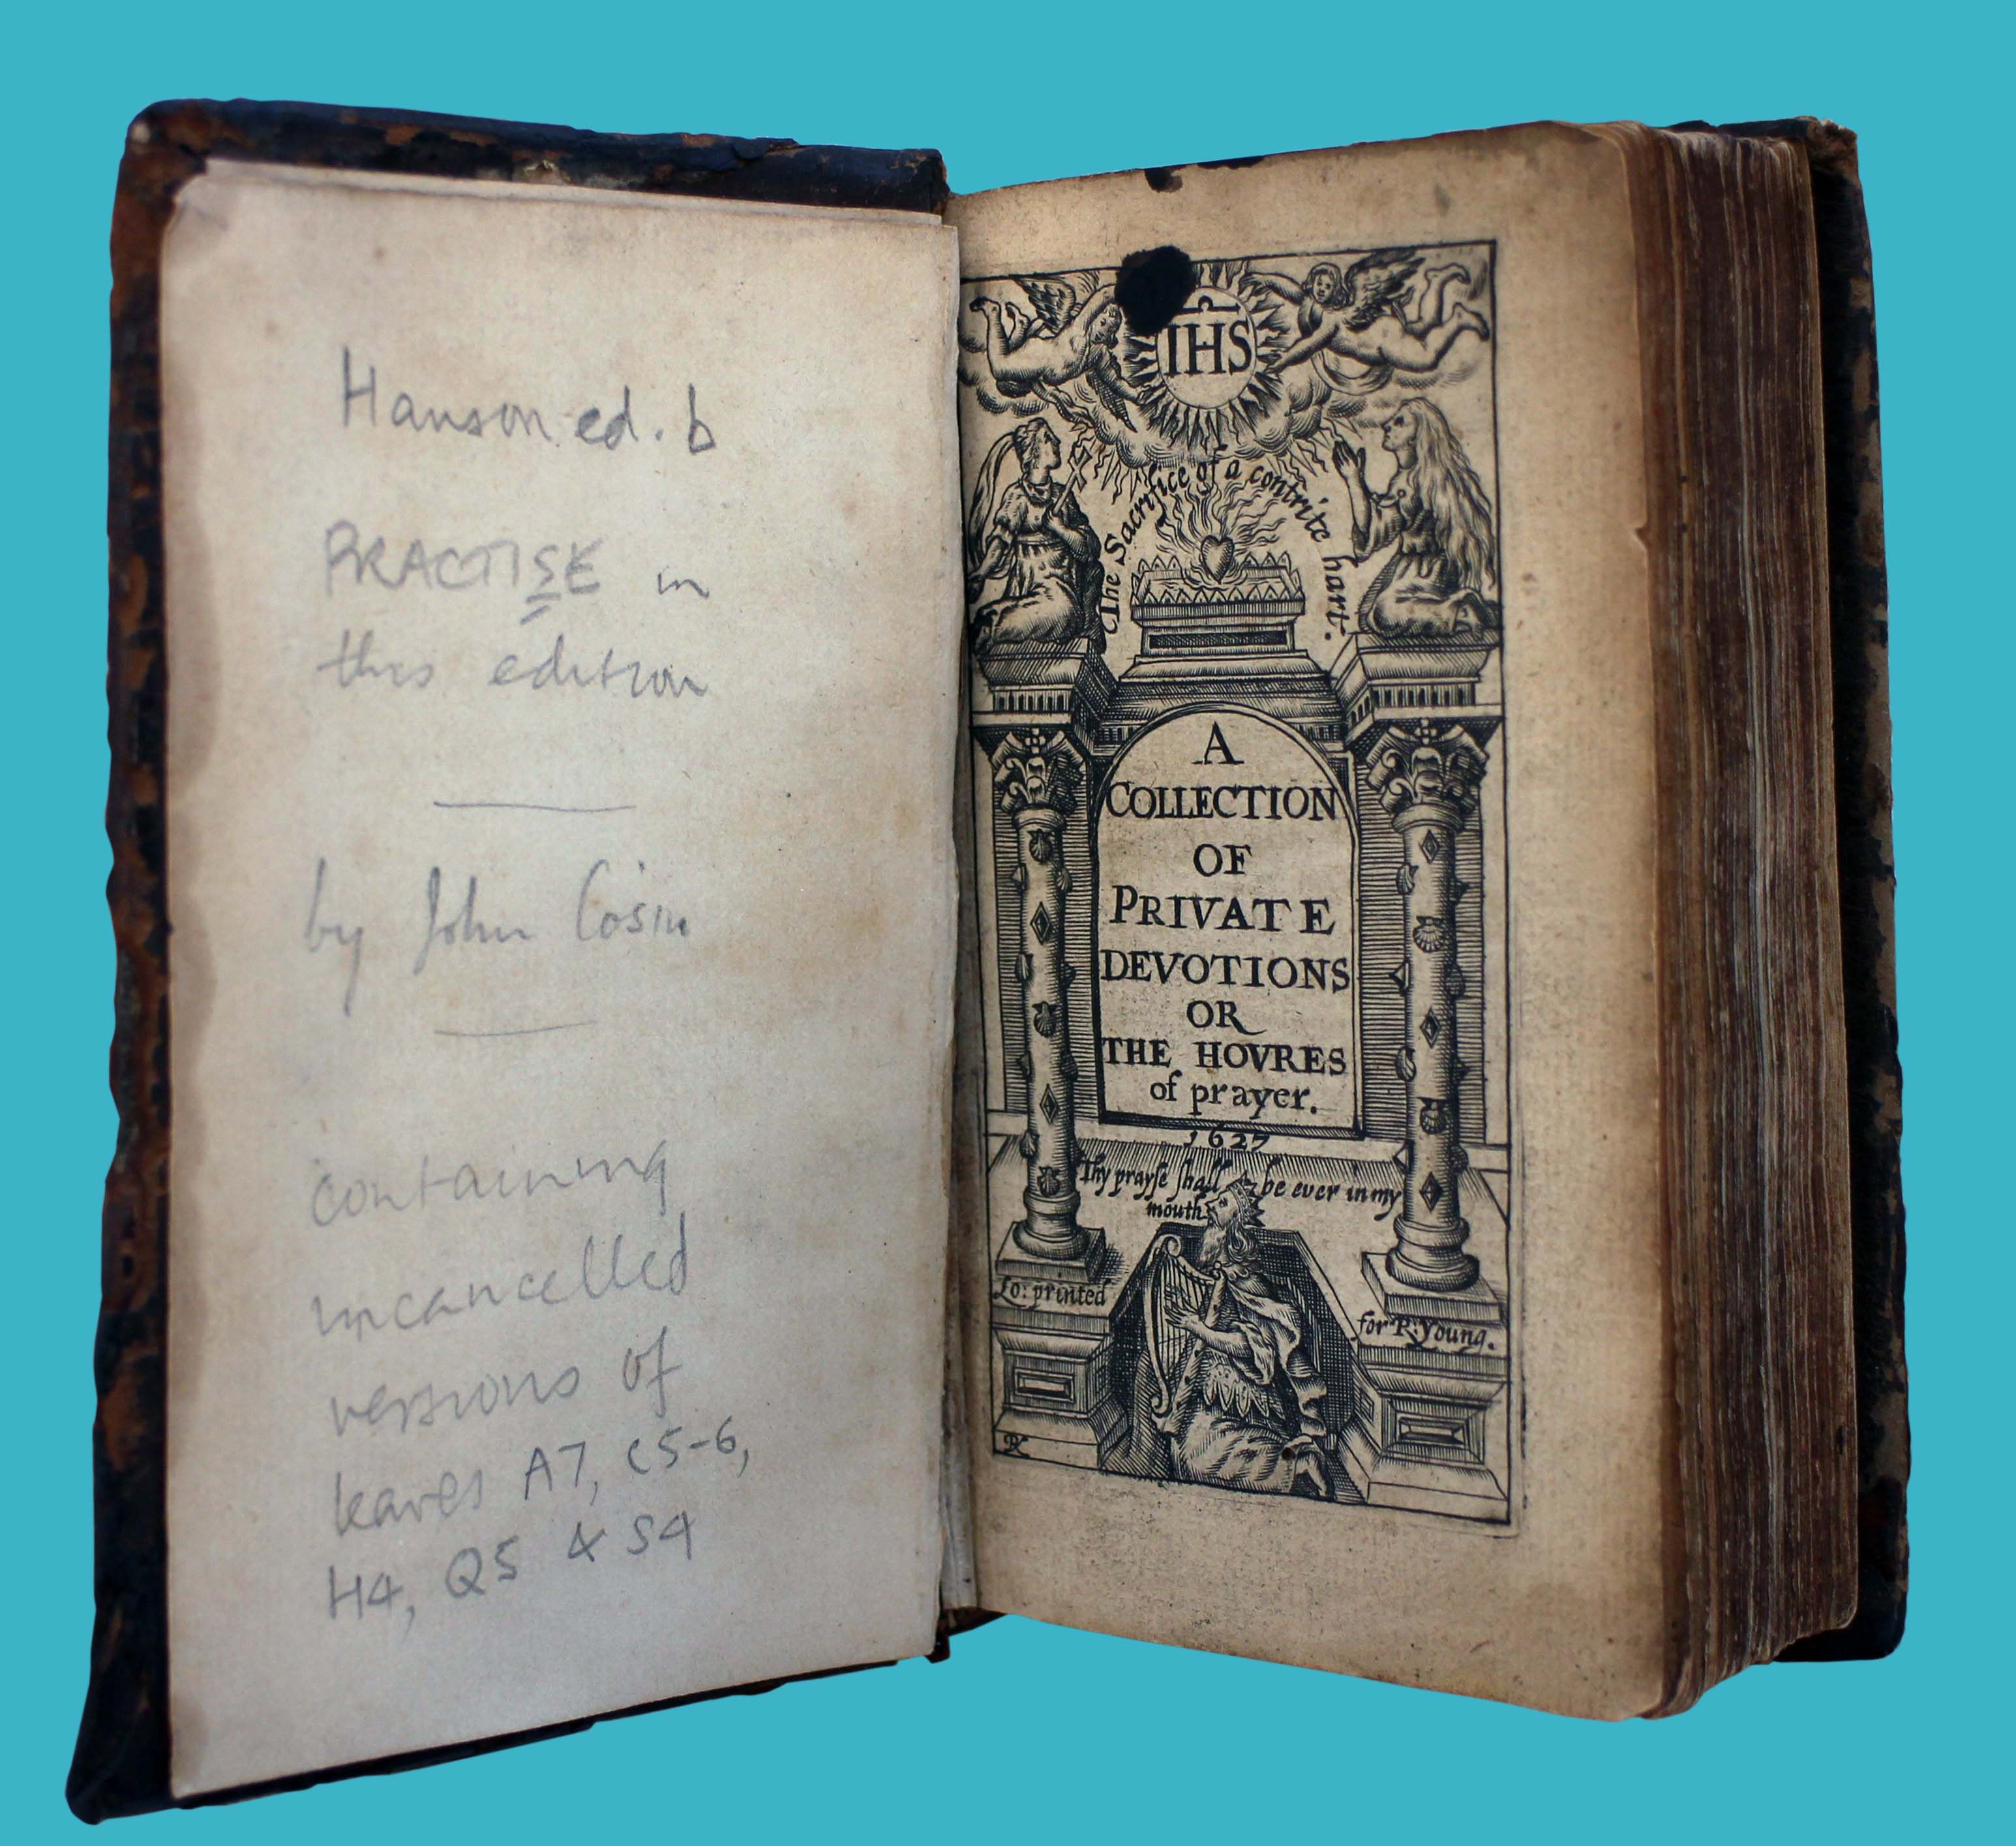 Hanson ed. b
PRACTISE in
this edition
by John Cosin
containing
uncancelled
versions of
leaves A7, C5-6,
H4, Q5 & S4
IHS
The Sacrifice of a contrite hart.
A
COLLECTION
OF
PRIVATE
DEVOTIONS
OR
THE HOVRES
of prayer.
1627
Thy prayse shall be ever in my
mouth
Lo: printed
for R: Young.